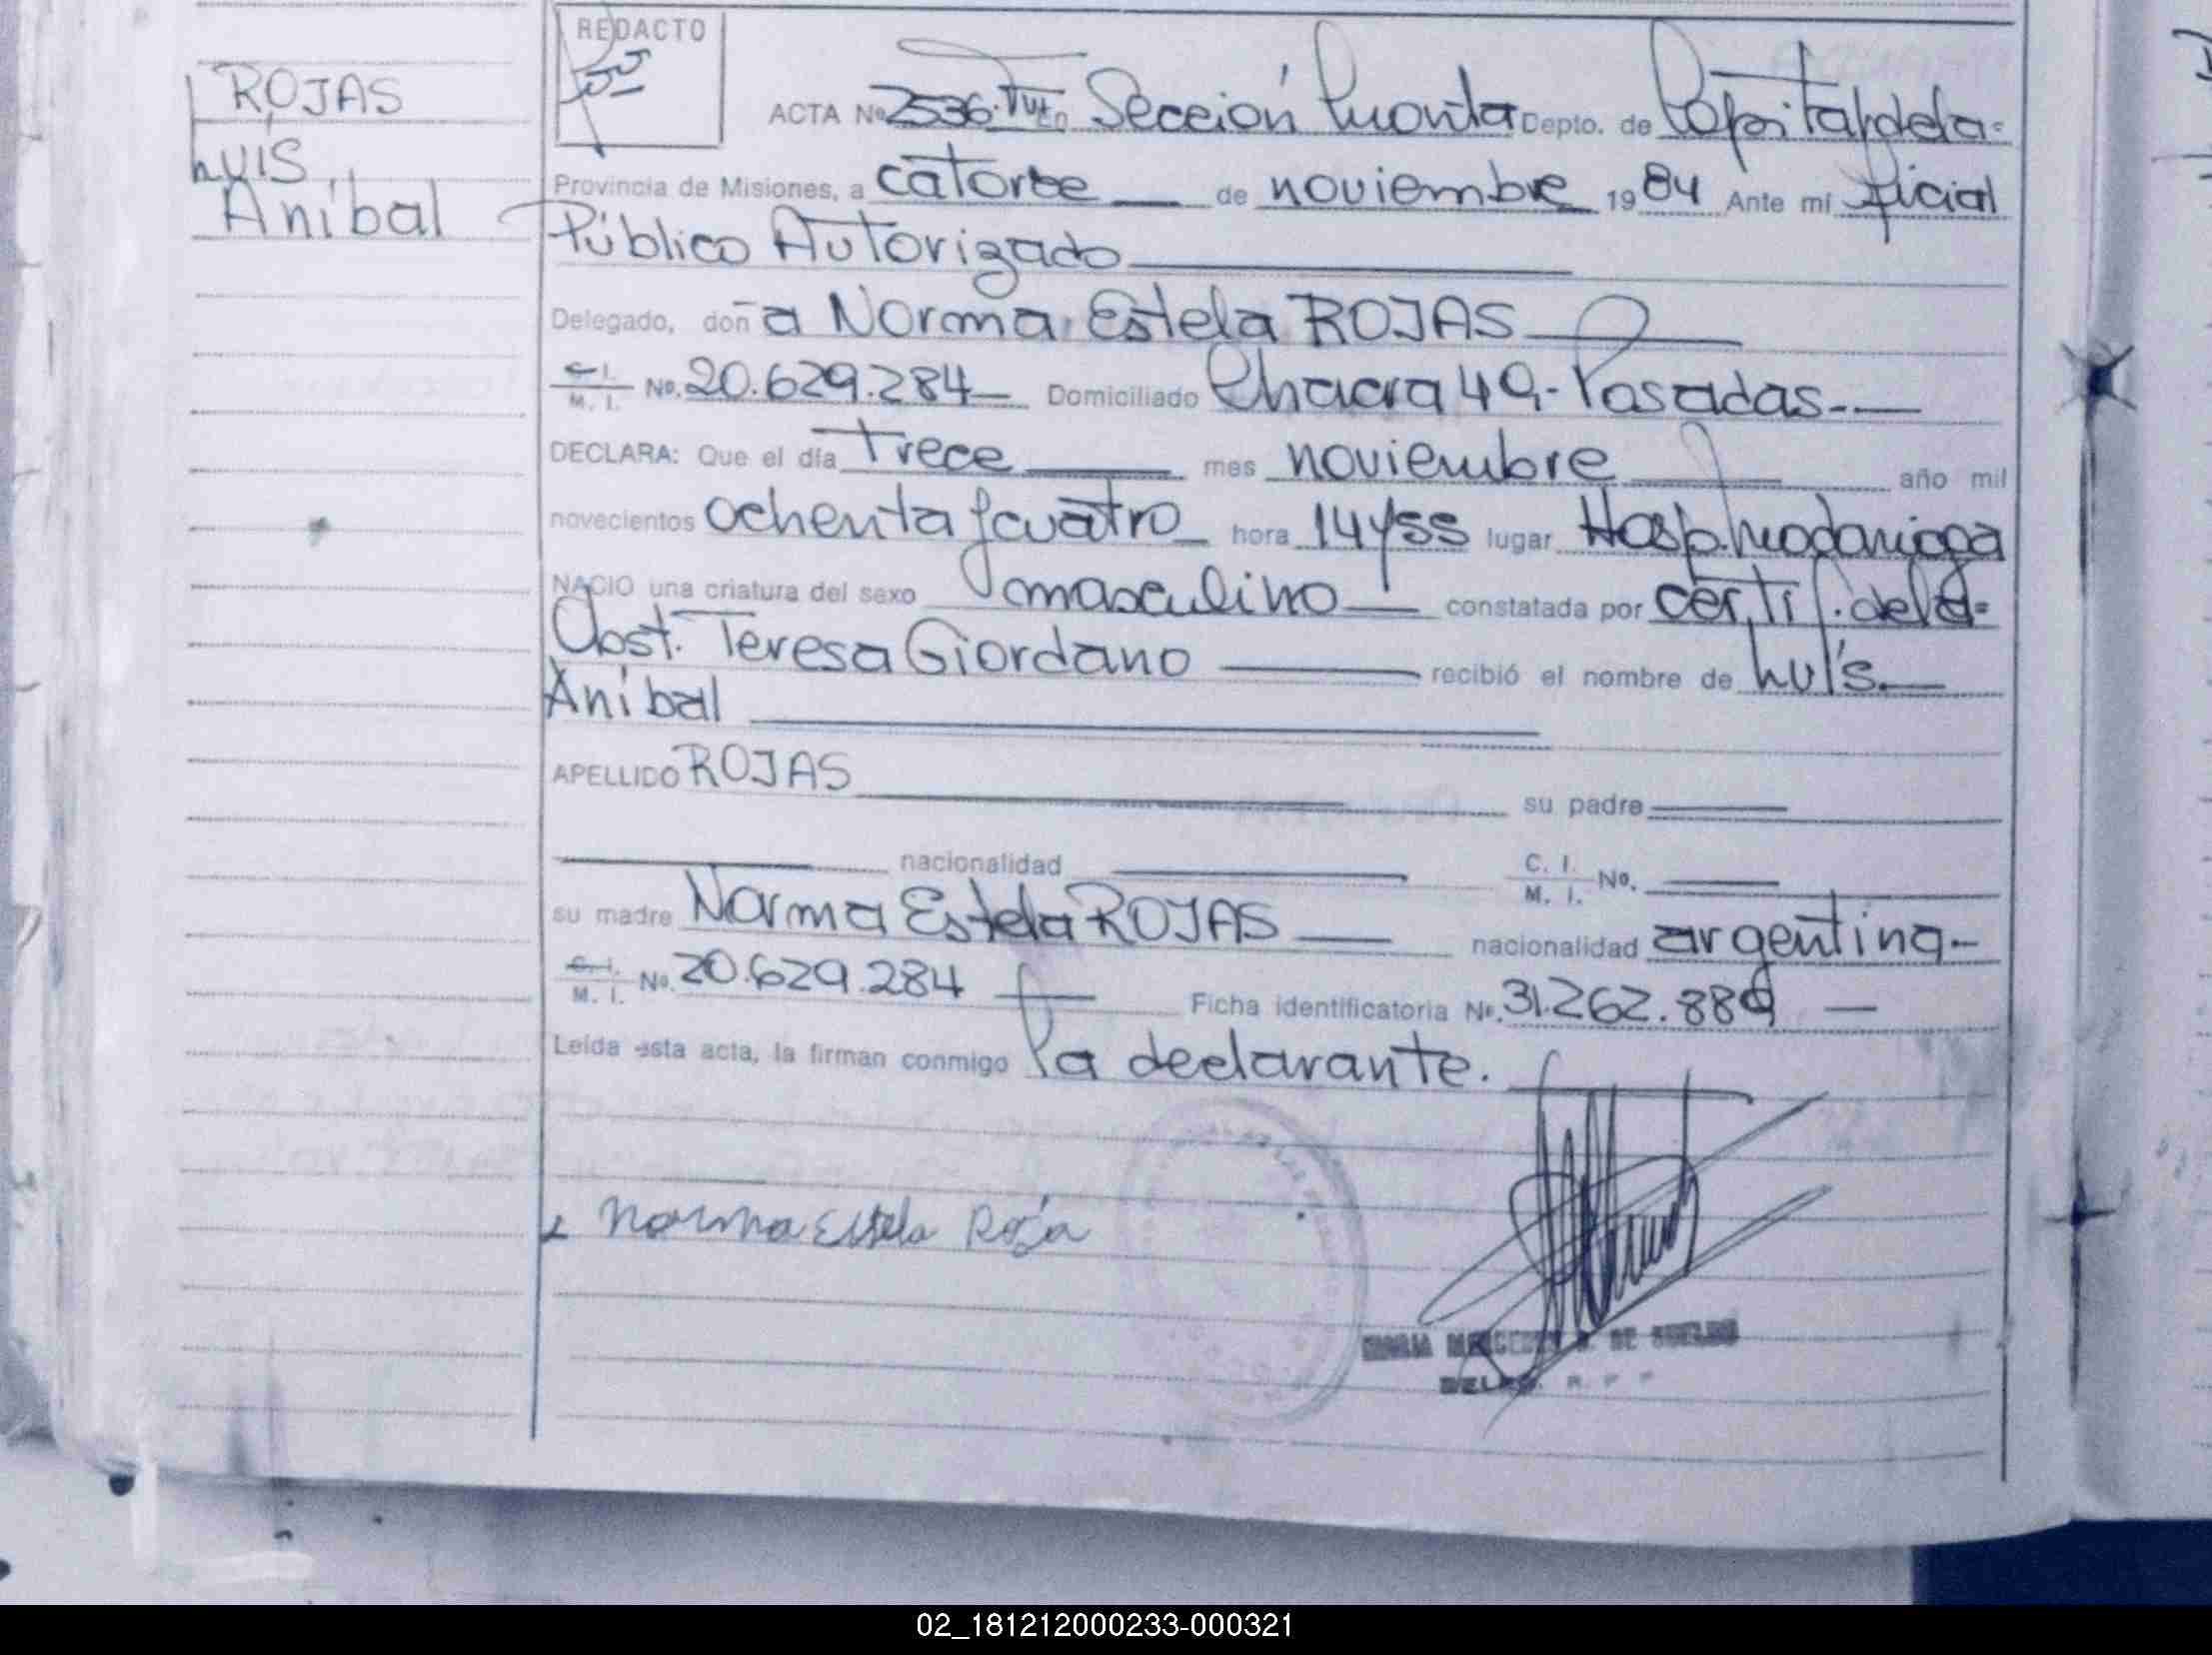 ROJAS
Luís
Aníbal
REDACTO
ACTA Nº 2536. En Sección Cuarta Depto. de Capital, de la-
Provincia de Misiones, a catorce de noviembre 1984 Ante mí Oficial
Público Autorizado
Delegado, doña Norma Estela ROJAS
C. I.
M. I. Nº. 20.629.284 Domiciliado Chacra 49,- Posadas.-
DECLARA: Que el día trece mes noviembre año mil
novecientos ochenta y cuatro hora 14y55 lugar Hosp. Madariaga
NACIO una criatura del sexo masculino constatada por certif. de la-
Obst. Teresa Giordano recibió el nombre de Luís
Aníbal
APELLIDO ROJAS su padre
nacionalidad C. I.
M. I. Nº.
su madre Norma Estela ROJAS nacionalidad argentina-
C. I.
M. I. Nº. 20.629.284 Ficha identificatoria Nº. 31.262.889
Leída esta acta, la firman conmigo la declarante.
Norma Estela Roja
MERCEDES DE
02_181212000233-000321